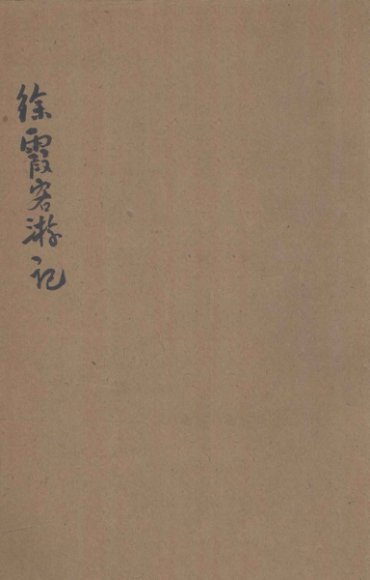 徐霞客游记